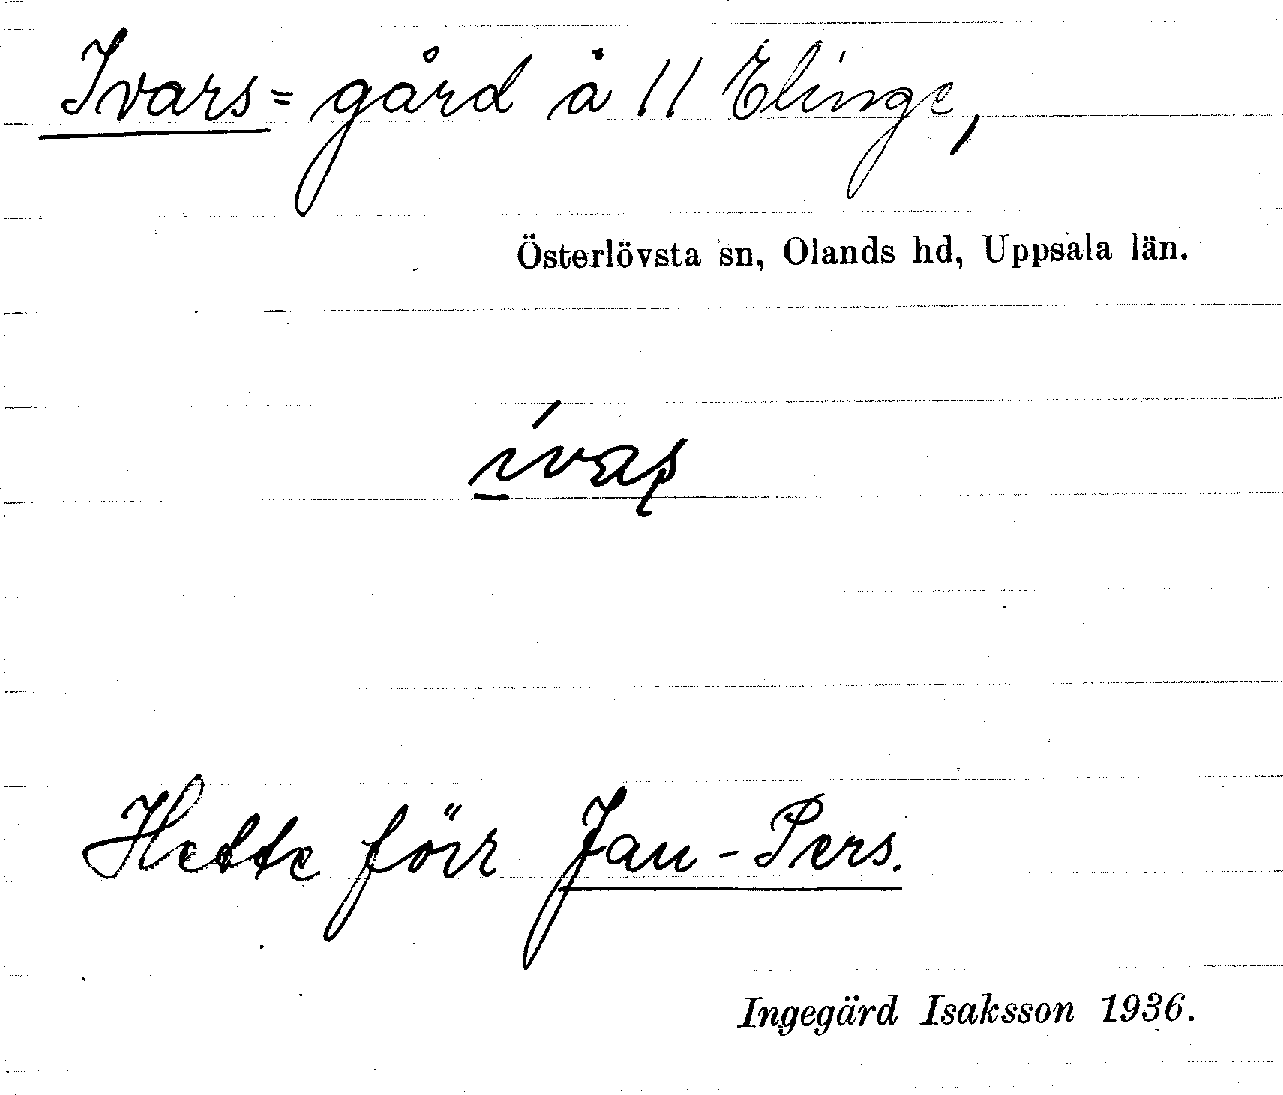 Ivars = gård å 11 Elinge,
Österlövsta sn, Olands hd, Uppsala län.
ivaʂ
Hette förr Jan-Pers.
Ingegärd Isaksson 1936.